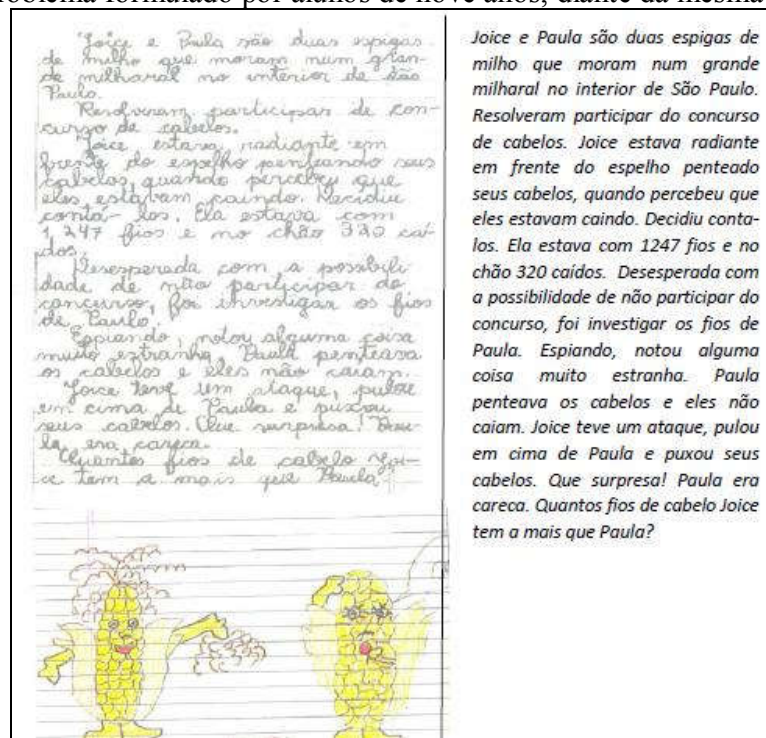 roblema formulado por alunos de nove anos, diante da mesma
Joice e Paula são duas espigas
de milho que moram num gran-
de milharal no interior de São
Paulo.
Resolveram participar de con-
curso de cabelos.
Joice estava radiante em
frente do espelho penteando seus
cabelos, quando percebeu que
eles estavam caindo. Decidiu
contá-los. Ela estava com
1.247 fios e no chão 320 caí-
dos.
Desesperada com a possibili-
dade de não participar do
concurso, foi investigar os fios
de Paula.
Espiando, notou alguma coisa
muito estranha. Paula penteava
os cabelos e eles não caiam.
Joice teve um ataque, pulou
em cima de Paula e puxou
seus cabelos. Que surpresa! Pau-
la era careca.
Quantos fios de cabelo Joi-
ce tem a mais que Paula?
Joice e Paula são duas espigas de
milho que moram num grande
milharal no interior de São Paulo.
Resolveram participar do concurso
de cabelos. Joice estava radiante
em frente do espelho penteado
seus cabelos, quando percebeu que
eles estavam caindo. Decidiu conta-
los. Ela estava com 1247 fios e no
chão 320 caídos. Desesperada com
a possibilidade de não participar do
concurso, foi investigar os fios de
Paula. Espiando, notou alguma
coisa muito estranha. Paula
penteava os cabelos e eles não
caiam. Joice teve um ataque, pulou
em cima de Paula e puxou seus
cabelos. Que surpresa! Paula era
careca. Quantos fios de cabelo Joice
tem a mais que Paula?